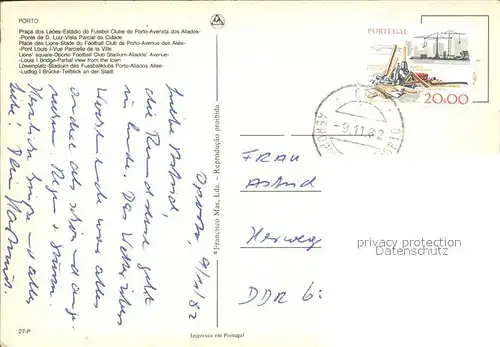 PORTO
Praça dos Leões-Estádio do Futebol Clube do Porto-Avenida dos Aliados-
-Ponte de D. Luiz-Vista Parcial da Cidade
Place des Lions-Stade du Football Club de Porto-Avenue des Alliés-
-Pont Louis I-Vue Parcielle de la Ville
Lions' square-Oporto Football Club Stadium-Aliados' Avenue-
-Louis I Bridge-Partial view from the town
Löwenplatz-Stadium des Fussballklubs Porto-Aliados Allee-
-Ludkig I Brücke-Teilblick an der Stadt
Oporto, 9/11/82
Liebe Astrid,
die Rundreise geht
zu Ende. Das Wetter übers
Wochenende war alles
andere als schön und ange-
nehm. Regen + Sturm.
Herzliche Grüße und alles
Liebe! Dein
27-P
© Francisco Mas, Lda. - Reprodução proibida
Impresso em Portugal
PORTUGAL
20.00
-9.11.82
FRAU
Astrid
Herweg
DDR
privacy protection
Datenschutz